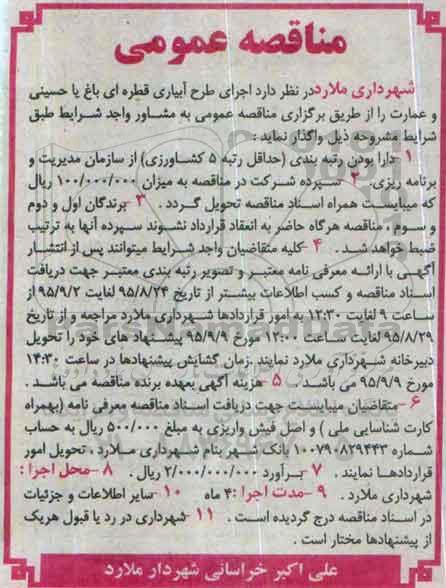 مناقصه عمومی
شهرداری ملارد در نظر دارد اجرای طرح آبیاری قطره ای باغ یا حسینی
و عمارت را از طریق برگزاری مناقصه عمومی به مشاور واجد شرایط طبق
شرایط مشروحه ذیل واگذار نماید :
1 دارا بودن رتبه بندی (حداقل رتبه ۵ کشاورزی) از سازمان مدیریت و
برنامه ریزی. 2 سپرده شرکت در مناقصه به میزان ۱۰۰/۰۰۰/۰۰۰ ریال
که میبایست همراه اسناد مناقصه تحویل گردد . 3 -برندگان اول و دوم
و سوم ، مناقصه هرگاه حاضر به انعقاد قرارداد نشوند سپرده آنها به ترتیب
ضبط خواهد شد . 4 -کلیه متقاضیان واجد شرایط میتوانند پس از انتشار
آگهی با ارائه معرفی نامه معتبر و تصویر رتبه بندی معتبر جهت دریافت
اسناد مناقصه و کسب اطلاعات بیشتر از تاریخ ۹۵/۸/۲۴ لغایت ۹۵/۹/۲ از
ساعت ۹ لغایت ۱۲:۳۰ به امور قراردادها شهرداری ملارد مراجعه و از تاریخ
۹۵/۸/۲۹ لغایت ساعت ۱۲:۰۰ مورخ ۹۵/۹/۹ پیشنهاد های خود را تحویل
دبیرخانه شهرداری ملارد نمایند .زمان گشایش پیشنهادها در ساعت ۱۴:۳۰
مورخ ۹۵/۹/۹ می باشد . 5 -هزینه آگهی بعهده برنده مناقصه می باشد .
6 -متقاضیان میبایست جهت دریافت اسناد مناقصه معرفی نامه (بهمراه
کارت شناسایی ملی ) و اصل فیش واریزی به مبلغ ۵۰۰/۰۰۰ ریال به حساب
شماره ۱۰۰۷۹۰۸۲۹۴۴۳ بانک شهر بنام شهرداری ملارد ، تحویل امور
قراردادها نمایند . 7 -برآورد ۲/۰۰۰/۰۰۰/۰۰۰ ریال . 8 -محل اجرا :
شهرداری ملارد . 9 -مدت اجرا : ۴ ماه 10 -سایر اطلاعات و جزئیات
در اسناد مناقصه درج گردیده است . 11 -شهرداری در رد یا قبول هریک
از پیشنهادها مختار است .
علی اکبر خراسانی شهردار ملارد